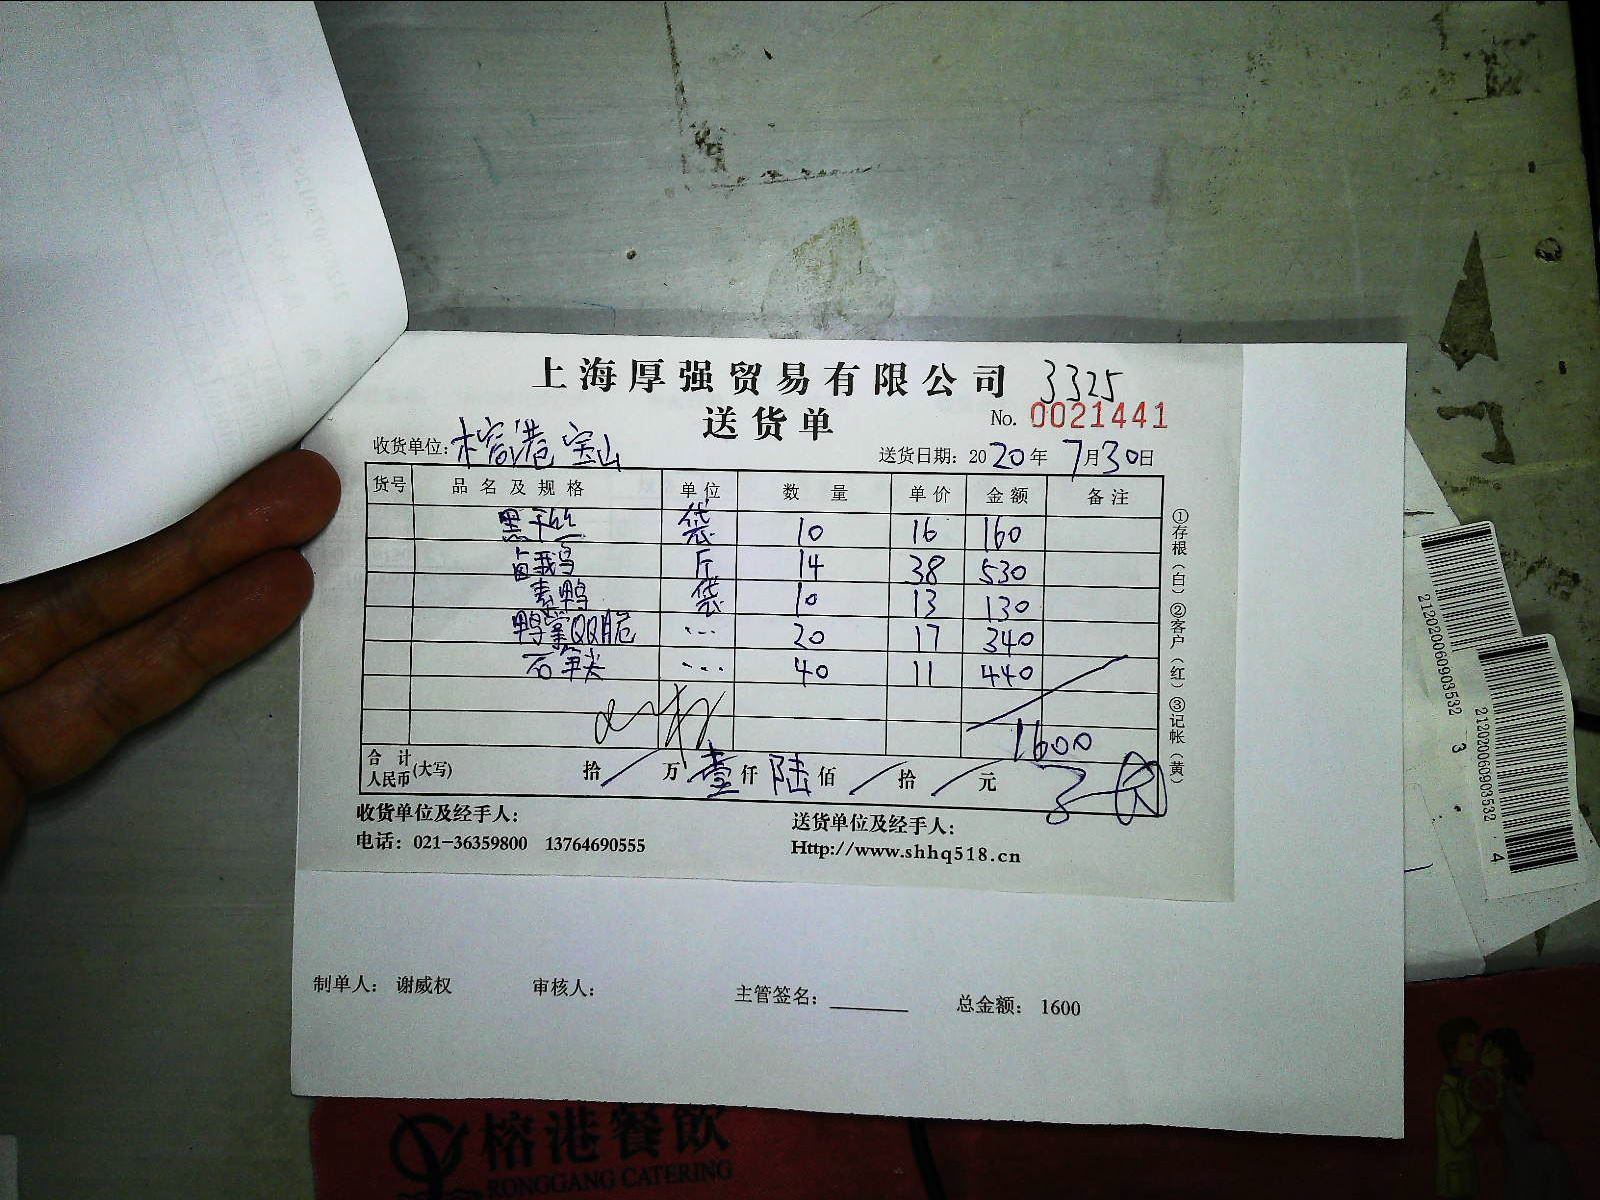 上海厚强贸易有限公司 3325
送货单 No. 0021441
收货单位: 榕港宝山 送货日期: 2020年7月30日
货号 品名及规格 单位 数量 单价 金额 备注
黑干丝 袋 10 16 160
卤鹅 斤 14 38 530
素鸭 袋 10 13 130
鸭掌QQ脆 ... 20 17 340
石笋尖 ... 40 11 440
1600
合计人民币(大写) 拾 / 万 壹仟陆佰 / 拾 / 元
①存根(白)②客户(红)③记帐(黄)
收货单位及经手人: 送货单位及经手人:
电话: 021-36359800 13764690555 Http://www.shhq518.cn
制单人: 谢威权 审核人: 主管签名: ______ 总金额: 1600
2120206090353​2 3
2120206090353​2 4
榕港餐飲
RONGGANG CATERING